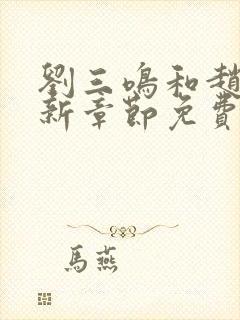 劉三鳴和趙
新章節免費
馬燕